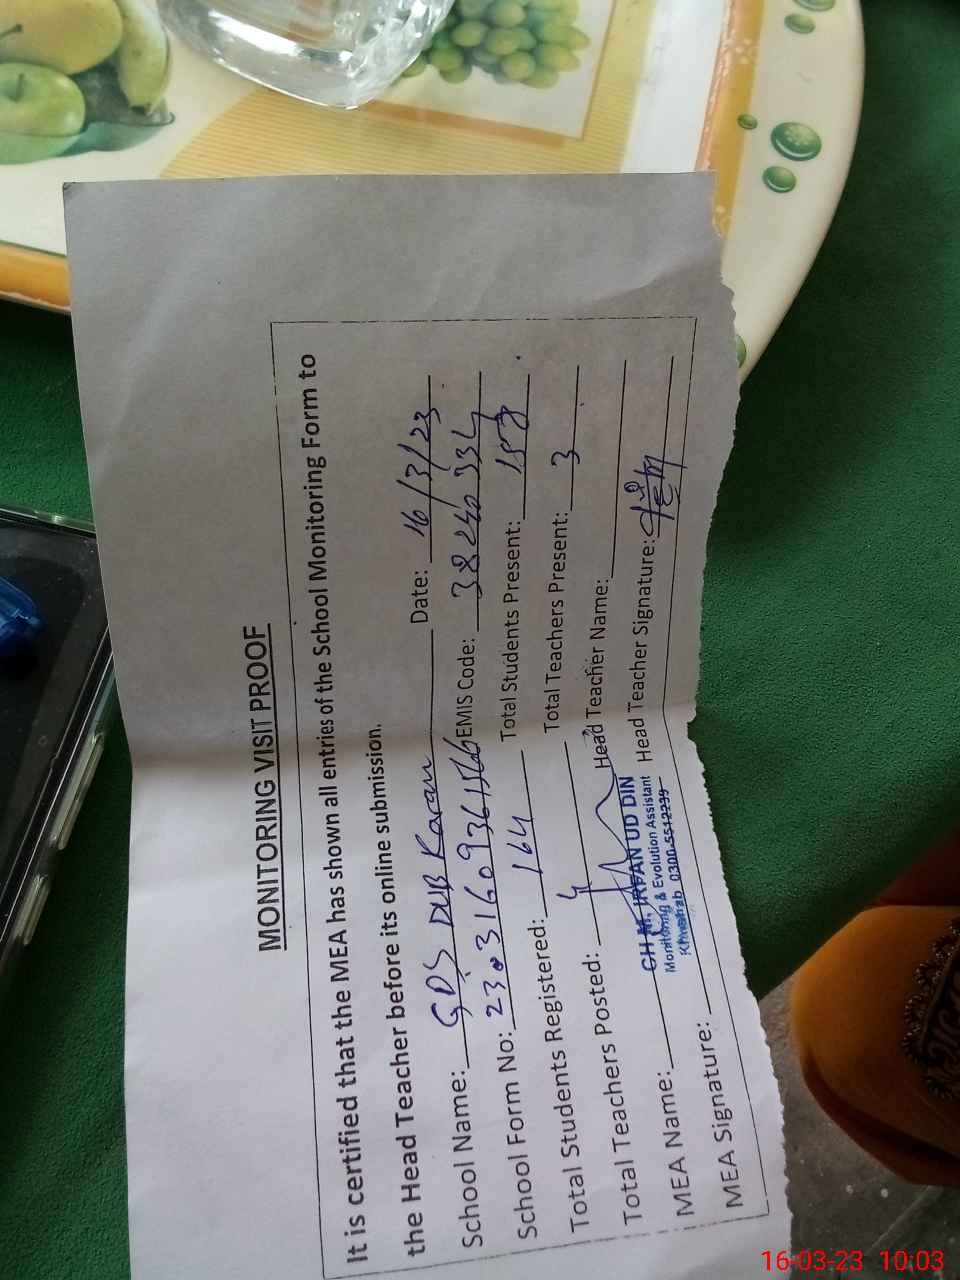 MONITORING VISIT PROOF
It is certified that the MEA has shown all entries of the School Monitoring Form to
the Head Teacher before its online submission.
School Name: GPS DUB Karam Date: 16/3/23
School Form No: 23031609361566 EMIS Code: 38240334
Total Students Registered: 164 Total Students Present:
Total Teachers Posted: 4 Total Teachers Present: 3
MEA Name: Head Teacher Name:
CH M. IRFAN UD DIN
Monitoring & Evolution Assistant
Khushab 0300-5512239
MEA Signature: Head Teacher Signature:
16-03-23 10:03